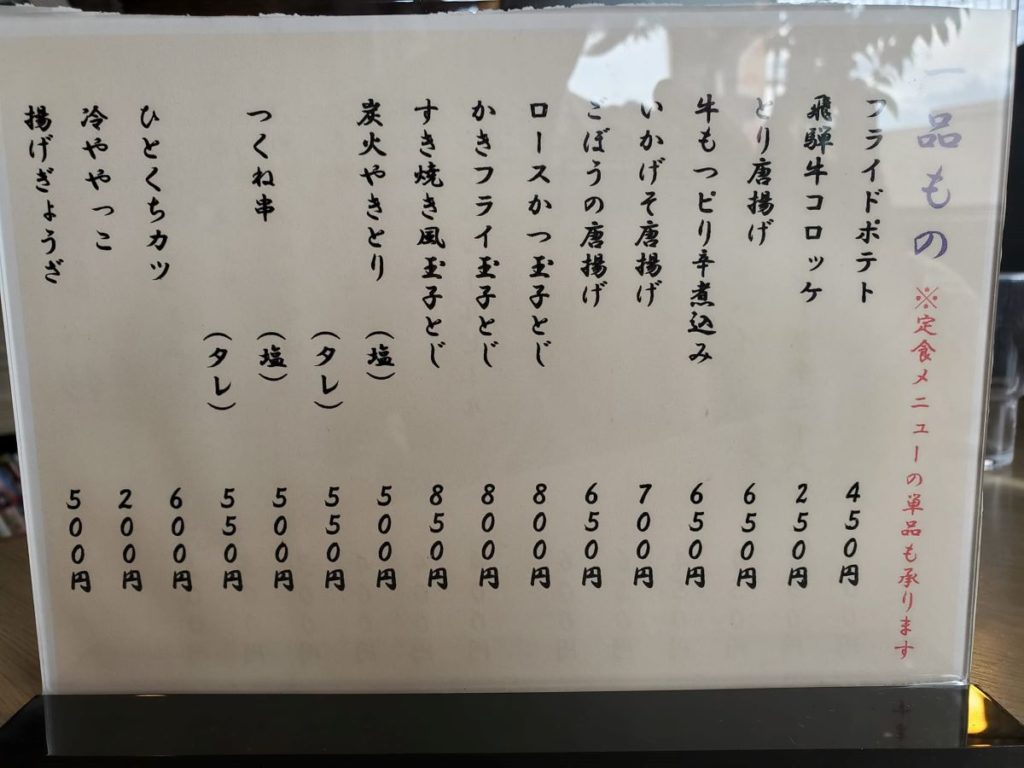 一品もの ※定食メニューの単品も承ります
フライドポテト 450円
飛騨牛コロッケ 250円
とり唐揚げ 650円
牛もつピリ辛煮込み 650円
いかげそ唐揚げ 700円
ごぼうの唐揚げ 650円
ロースかつ玉子とじ 800円
かきフライ玉子とじ 800円
すき焼き風玉子とじ 850円
炭火やきとり (塩) 500円
(タレ) 550円
つくね串 (塩) 500円
(タレ) 550円
ひとくちカツ 600円
冷ややっこ 200円
揚げぎょうざ 500円